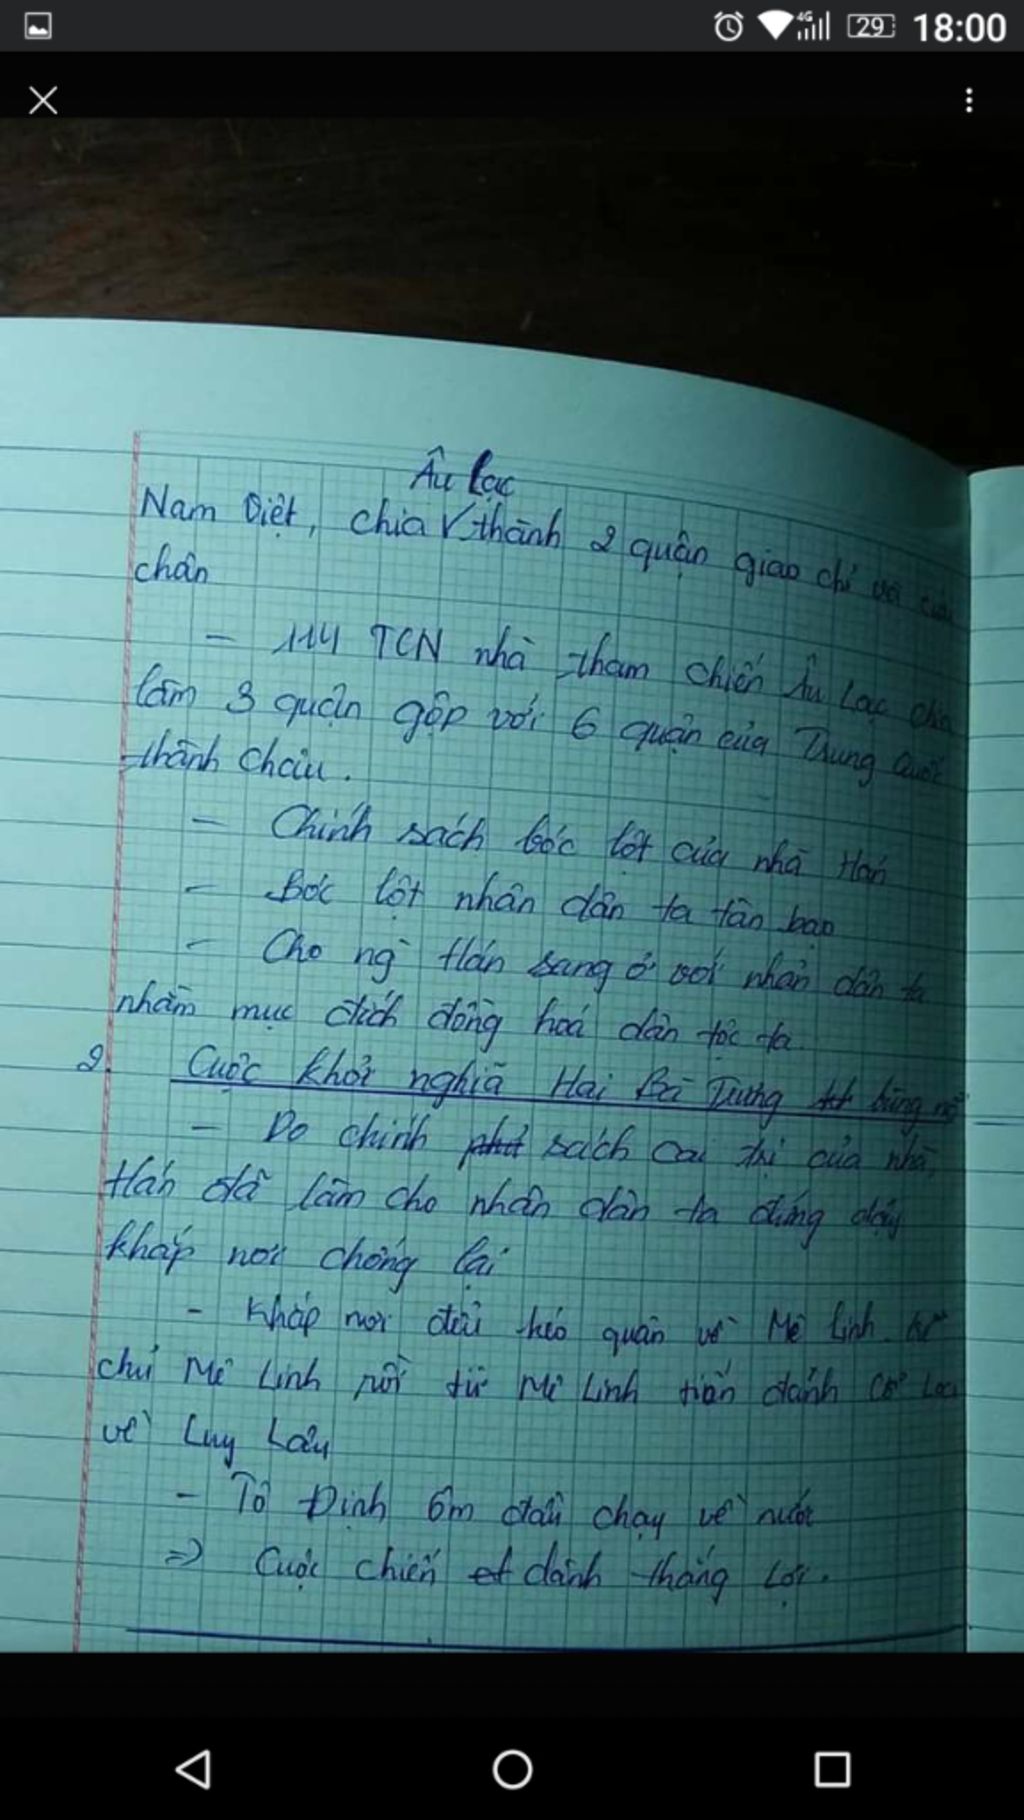 4G 29 18:00
Âu Lạc
Nam Việt, chia V thành 2 quận giao chỉ và cửu
chân
- 114 TCN nhà tham chiến Âu Lạc chia
làm 3 quận gộp với 6 quận của Trung Quốc
thành Chcâu.
- Chính sách bóc lột của nhà Hán
- Bóc lột nhân dân ta tàn bạo
- Cho ng Hán sang ở với nhân dân ta
nhằm mục đích đồng hoá dân tộc ta.
2. Cuộc khởi nghĩa Hai Bà Trưng bùng nổ
- Do chính sách cai trị của nhà
Hán đã làm cho nhân dân ta đứng dậy
khắp nơi chống lại
- Khắp nơi đều kéo quân về Mê Linh.
chủ Mê Linh rồi từ Mê Linh tiến đánh Cổ Loa
về Luy Lâu
- Tô Định ôm đầu chạy về nước
=> Cuộc chiến dành thắng lợi.